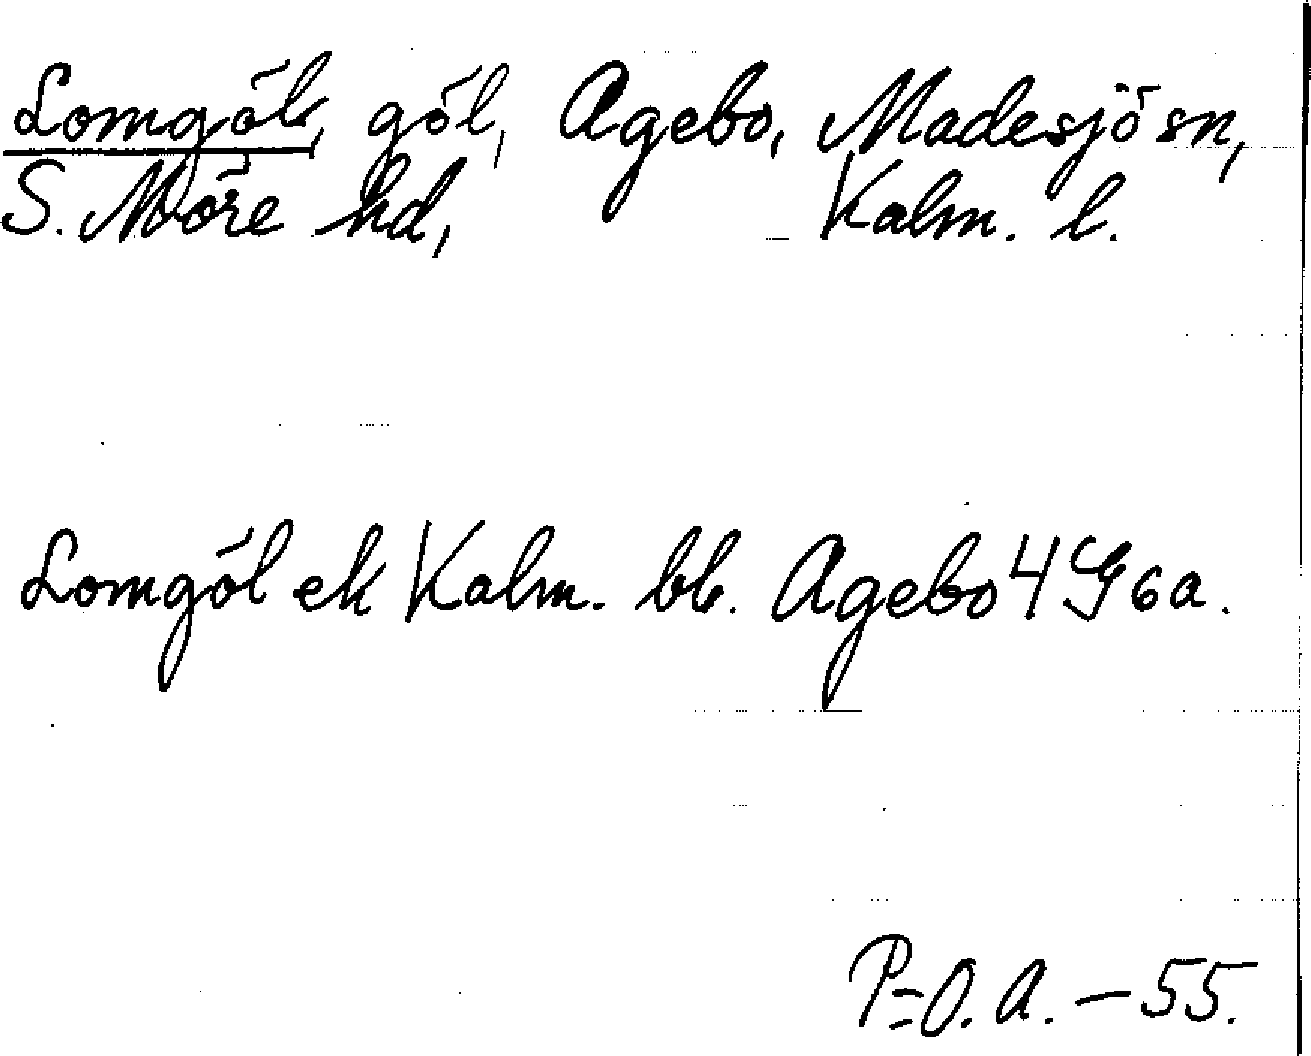 Lomgöl, göl, Agebo, Madesjö sn,
S. Möre hd, Kalm. l.
Lomgöl ek Kalm. bl. Agebo 4 G6a.
P=O. A. – 55.